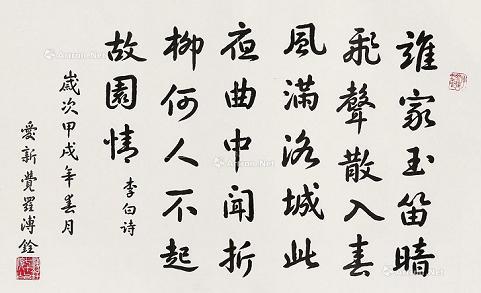 誰家玉笛暗
飛聲散入春
風滿洛城此
夜曲中聞折
柳何人不起
故園情
李白诗
歲次甲戌年春月
愛新覺羅溥銓